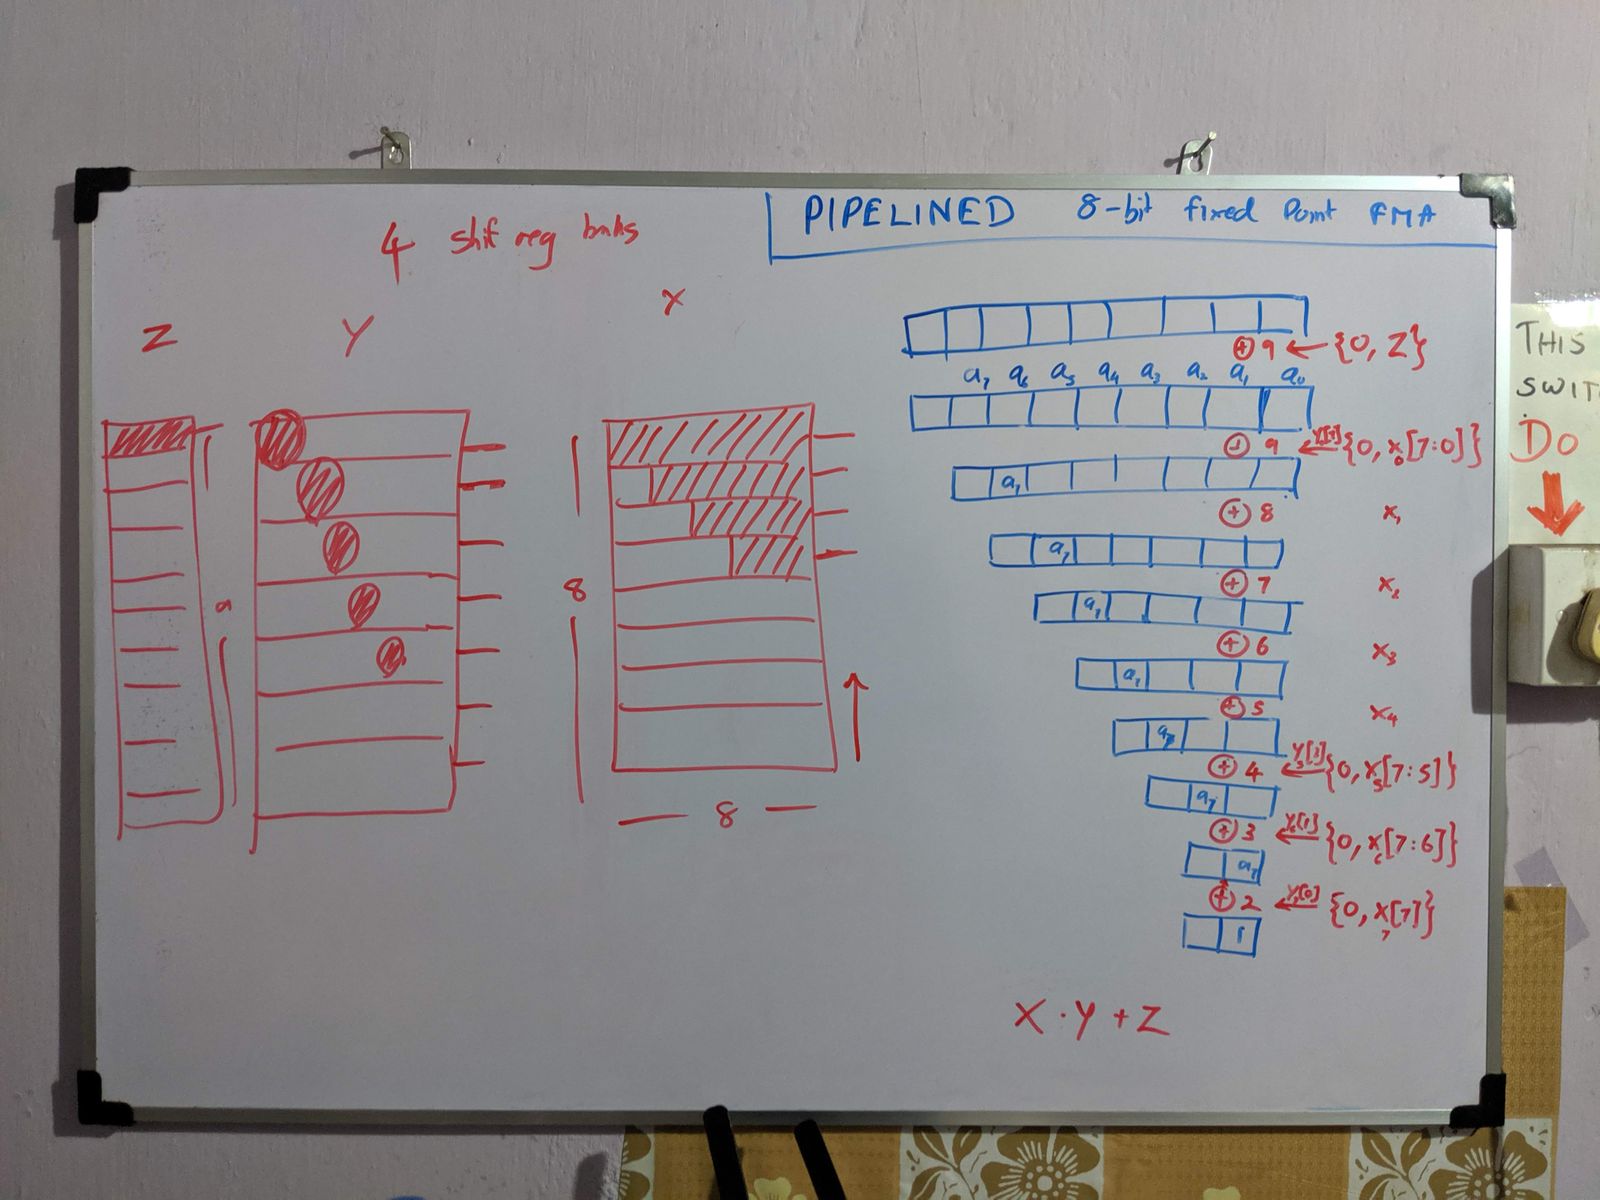 PIPELINED 8-bit fixed Point FMA
4 shif reg bnks
Z
Y
X
9
8
8
⊕ 9 ← {0, Z}
a₇ a₆ a₅ a₄ a₃ a₂ a₁ a₀
9 ← {0, x₀[7:0]}
a₇
⊕ 8 x₁
a₇
⊕ 7 x₂
a₇
⊕ 6 x₃
a₇
⊕ 5 x₄
a₇
⊕ 4 ← {0, x₅[7:5]}
a₇
⊕ 3 ← y₆[1] {0, x₆[7:6]}
a₇
⊕ 2 ← y₇[0] {0, x₇[7]}
1
X · Y + Z
THIS
SWIT
DO